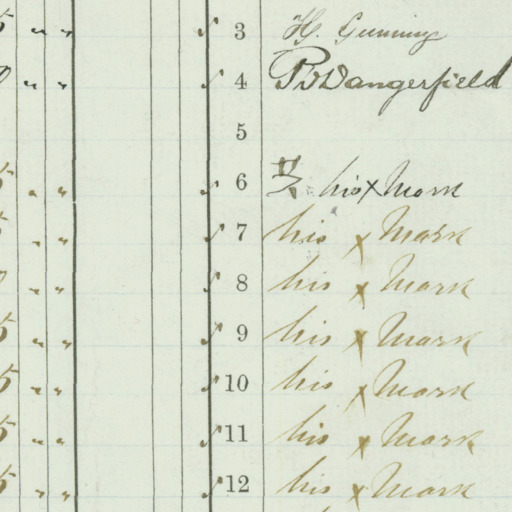 5 " " ✓ 3 H. Gunning
" " ✓ 4 Dangerfield
5
5 " " ✓ 6 his x Mark
" " ✓ 7 his x Mark
" " ✓ 8 his x Mark
5 " " ✓ 9 his x Mark
5 " " ✓ 10 his x Mark
5 " " ✓ 11 his x Mark
5 " " ✓ 12 his x Mark